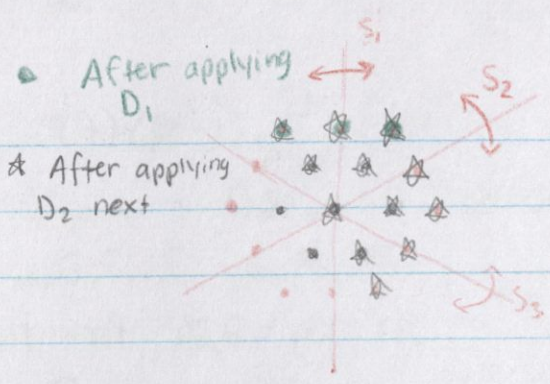 S₁
After applying
D₁
S₂
After applying
D₂ next
S₃